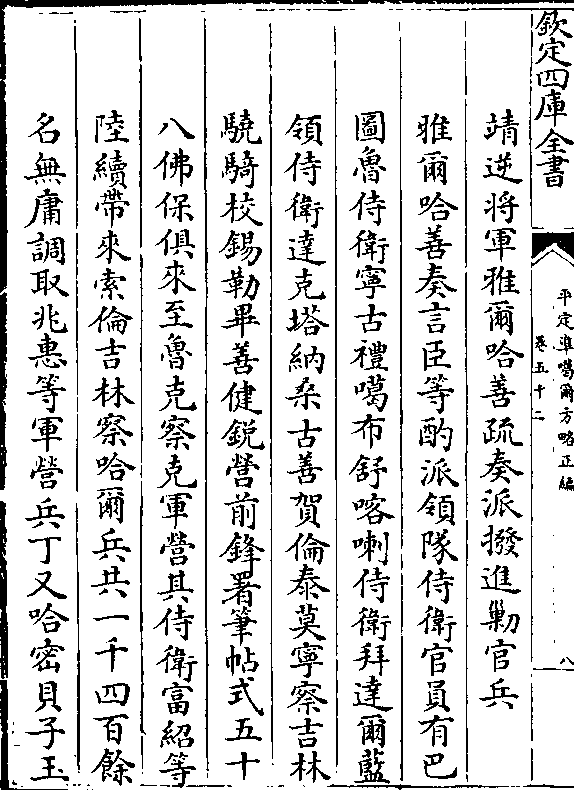 欽定四庫全書
平定準噶爾方略正編
卷五十二
八
靖逆将軍雅爾哈善疏奏派撥進勦官兵
雅爾哈善奏言臣等酌派領隊侍衛官員有巴
圖魯侍衛寧古禮噶布舒喀喇侍衛拜達爾藍
領侍衛達克塔納桑古善賀倫泰莫寧察吉林
驍騎校錫勒畢善健銳營前鋒署筆帖式五十
八佛保俱來至魯克察克軍營其侍衛富紹等
陸續帶來索倫吉林察哈爾兵共一千四百餘
名無庸調取兆惠等軍營兵丁又哈密貝子玉